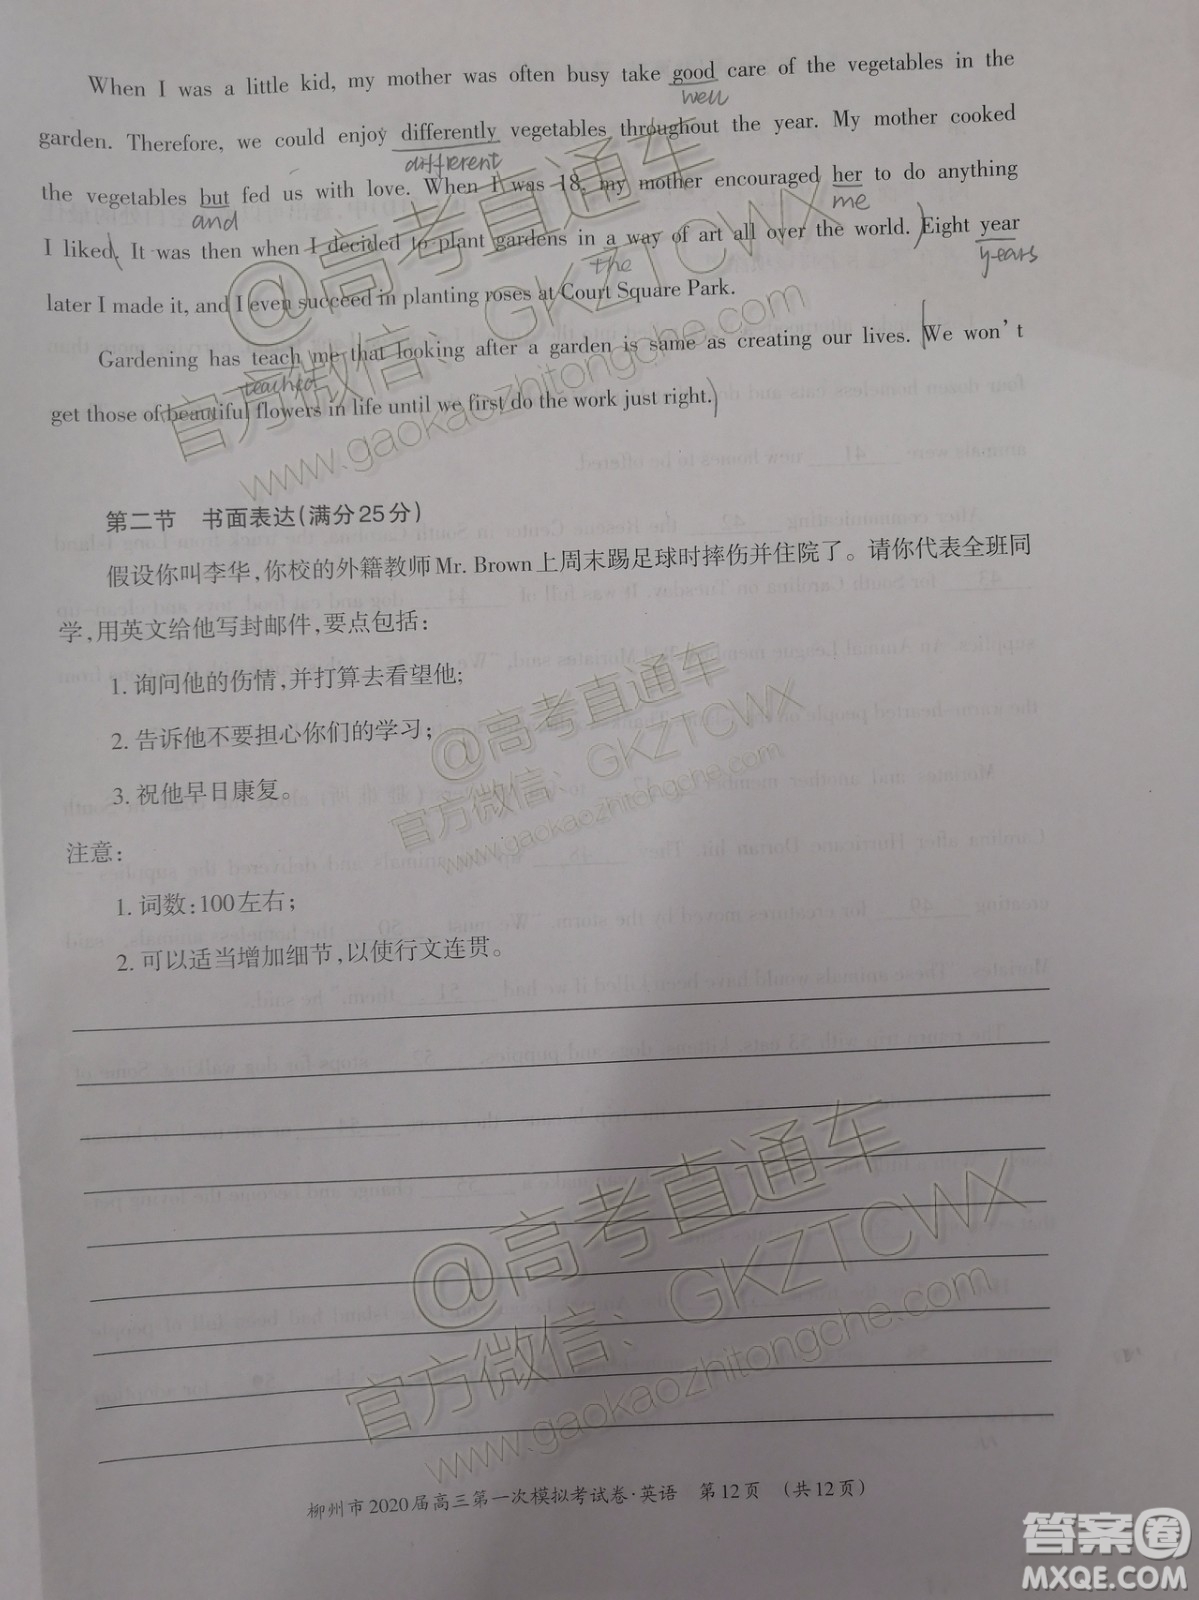 When I was a little kid, my mother was often busy take good care of the vegetables in the
well
garden. Therefore, we could enjoy differently vegetables throughout the year. My mother cooked
different
the vegetables but fed us with love. When I was 18, my mother encouraged her to do anything
and me
I liked. It was then when I decided to plant gardens in a way of art all over the world. Eight year
the years
later I made it, and I even succeed in planting roses at Court Square Park.
Gardening has teach me that looking after a garden is same as creating our lives. We won't
teached
get those of beautiful flowers in life until we first do the work just right.
第二节 书面表达(满分25分)
假设你叫李华,你校的外籍教师Mr. Brown上周末踢足球时摔伤并住院了。请你代表全班同
学,用英文给他写封邮件,要点包括:
1. 询问他的伤情,并打算去看望他;
2. 告诉他不要担心你们的学习;
3. 祝他早日康复。
注意:
1. 词数:100左右;
2. 可以适当增加细节,以使行文连贯。
柳州市2020届高三第一次模拟考试卷·英语 第12页 (共12页)
@高考直通车
官方微信:GKZTCWX
www.gaokaozhitongche.com
@高考直通车
官方微信:GKZTCWX
www.gaokaozhitongche.com
@高考直通车
官方微信:GKZTCWX
www.gaokaozhitongche.com
答案圈
MXQE.COM